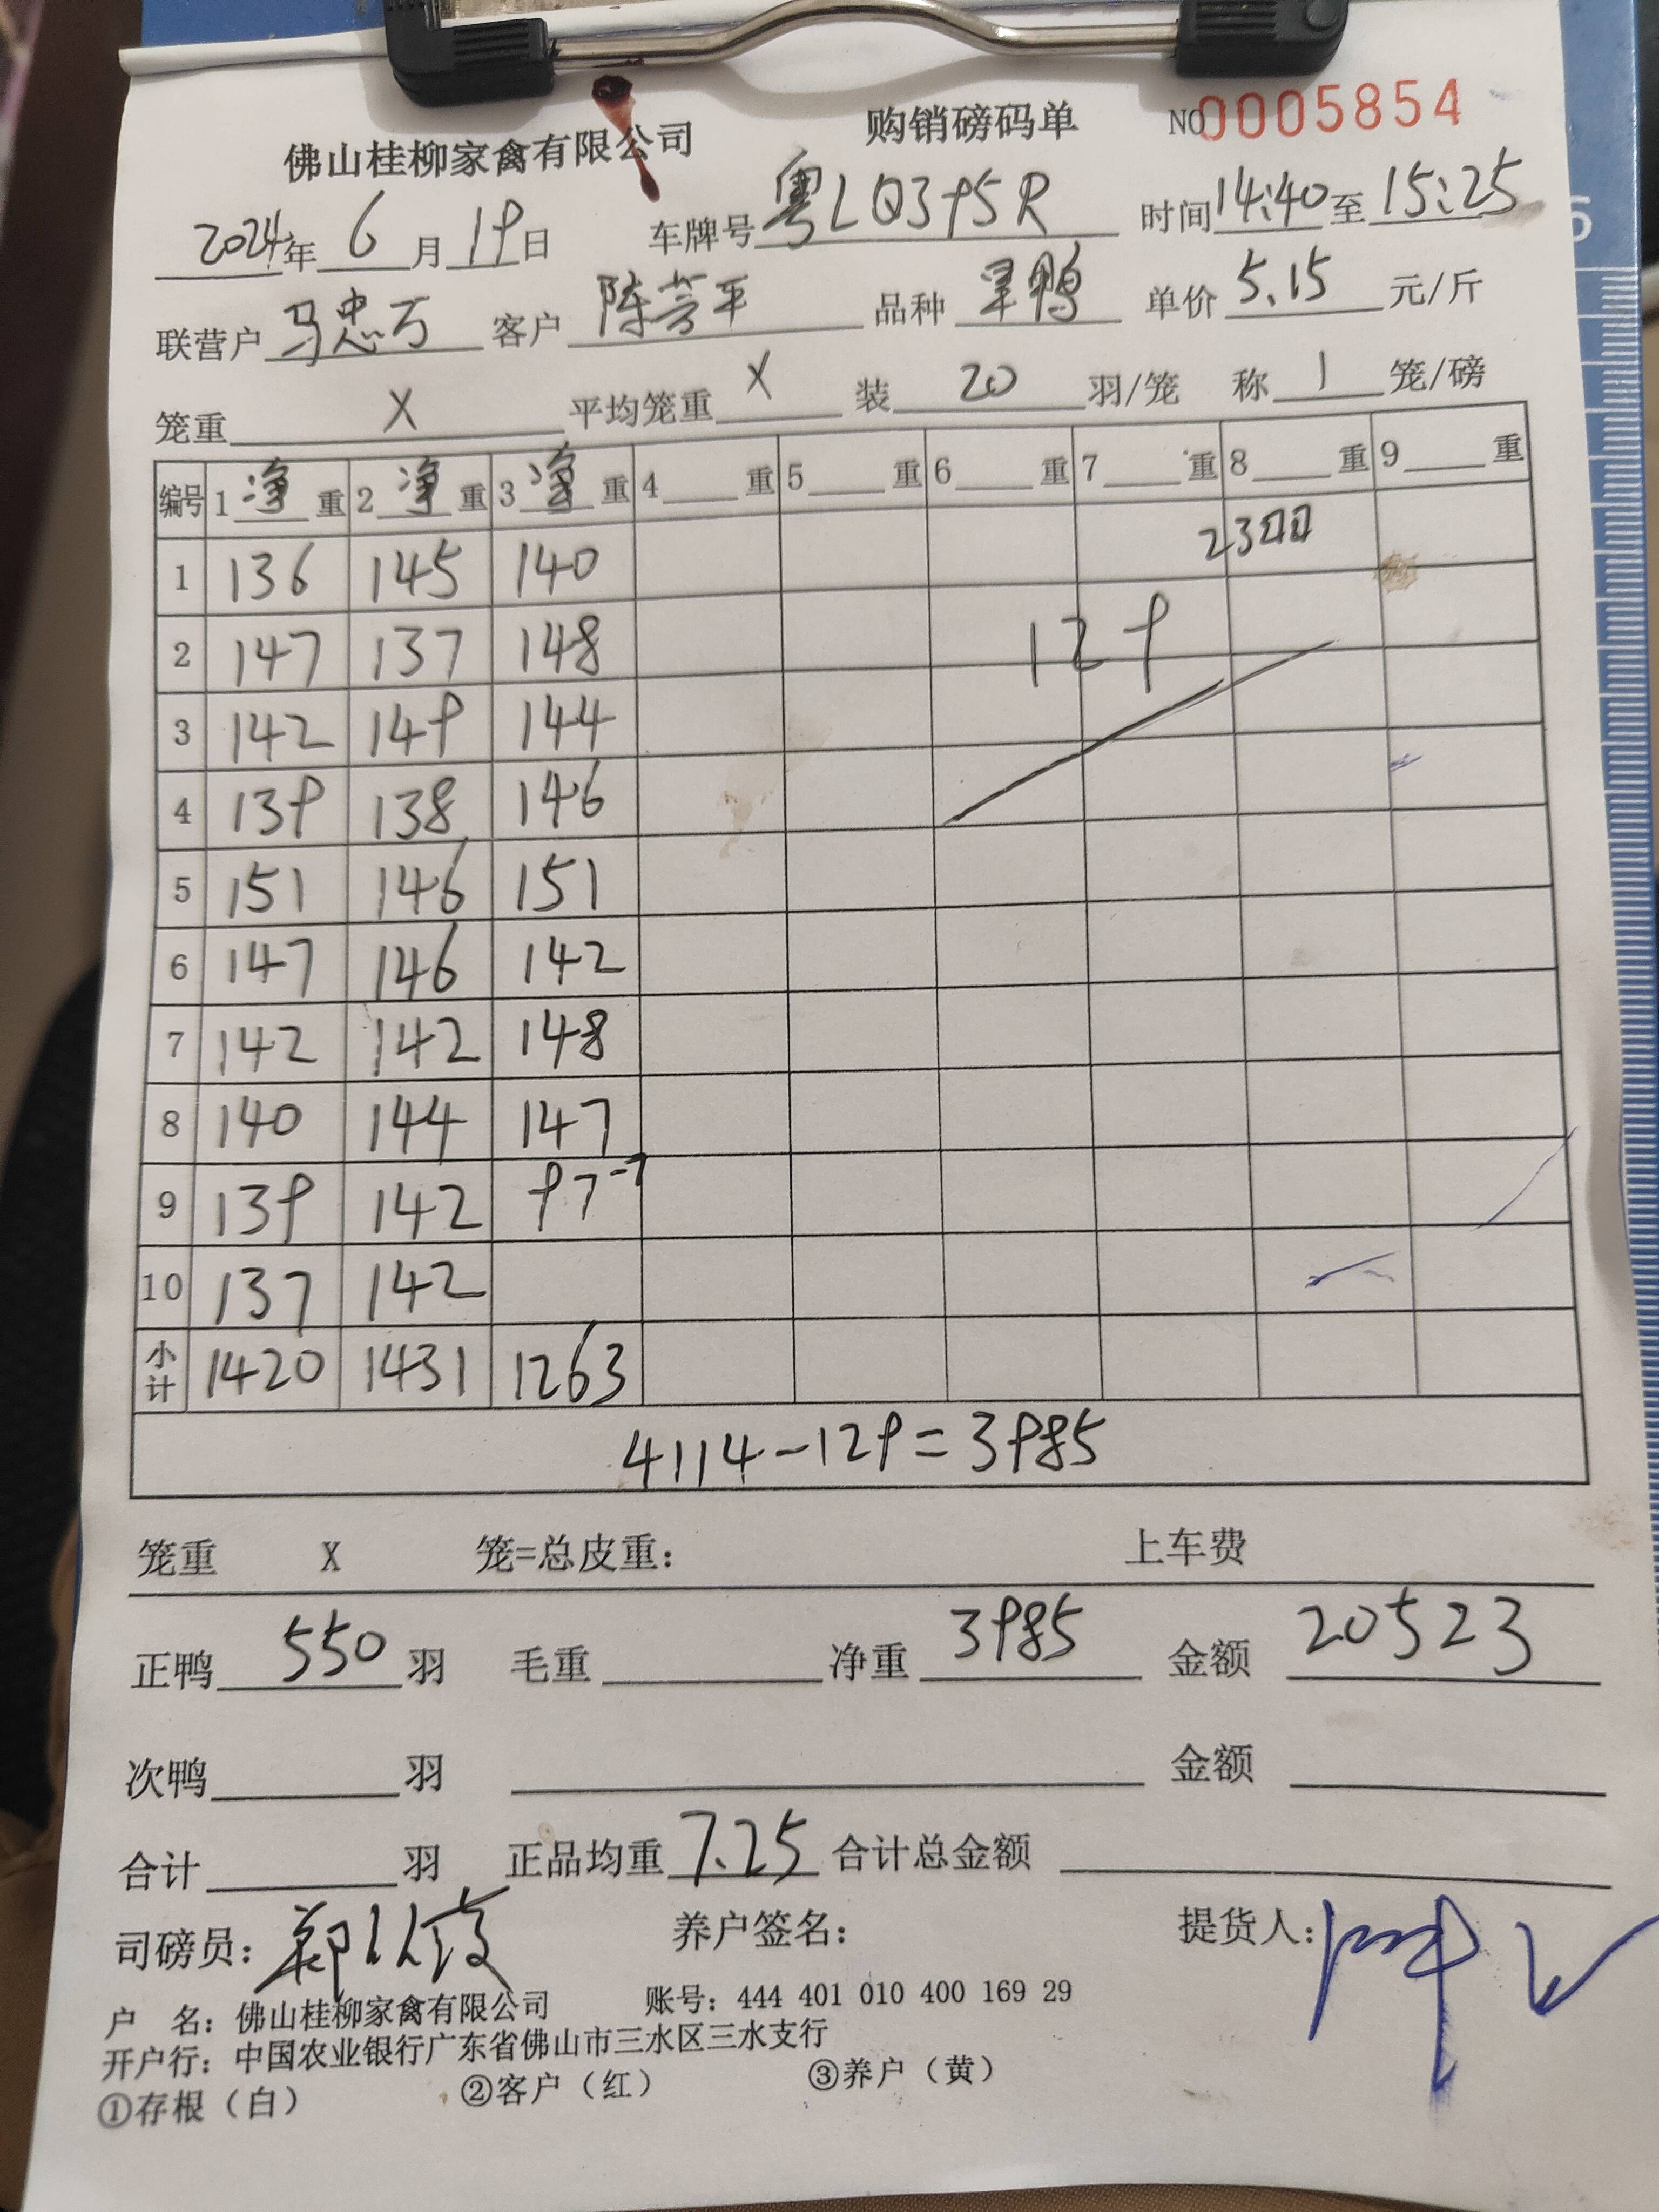 佛山桂柳家禽有限公司 购销磅码单 NO0005854
2024年 6 月 19日 车牌号 粤LQ395R 时间14:40至 15:25
联营户 马忠万 客户 陈芳平 品种 旱鸭 单价 5.15 元/斤
笼重 X 平均笼重 X 装 20 羽/笼 称 1 笼/磅
编号 1 净 重 2 净 重 3 净 重 4 重 5 重 6 重 7 重 8 重 9 重
1 136 145 140
2 147 137 148 129
3 142 149 144
4 139 138 146
5 151 146 151
6 147 146 142
7 142 142 148
8 140 144 147
9 139 142 97-7
10 137 142
小计 1420 1431 1263
4114-129=3985
笼重 X 笼=总皮重： 上车费
正鸭 550 羽 毛重 净重 3985 金额 20523
次鸭 羽 金额
合计 羽 正品均重 7.25 合计总金额
司磅员： 养户签名： 提货人：
户 名：佛山桂柳家禽有限公司 账号：444 401 010 400 169 29
开户行：中国农业银行广东省佛山市三水区三水支行
①存根（白） ②客户（红） ③养户（黄）